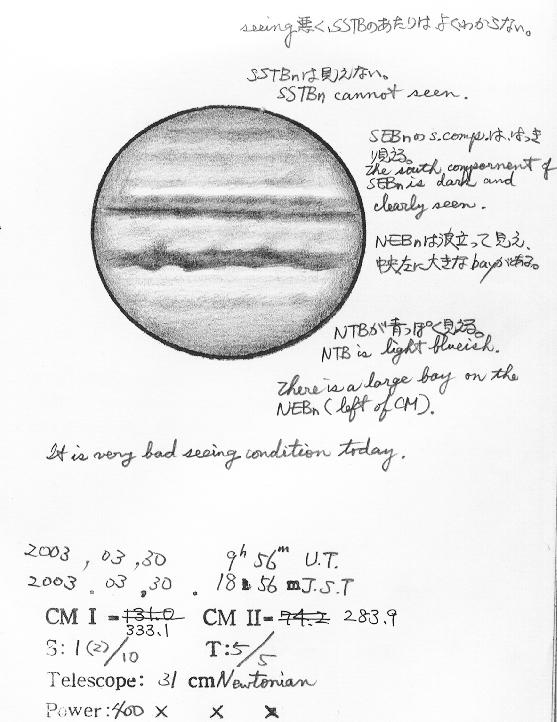 seeing悪く、SSTBのあたりはよくわからない。
SSTBnは見えない。
SSTBn cannot seen.
SEBnのs.comp.は、はっき
り見る。
the south compornent of
SEBn is dark and
clearly seen.
NEBnは波立って見え、
中央左に大きなbayがある。
NTBが青っぽく見える。
NTB is light blueish.
There is a large bay on the
NEBn (left of CM).
It is very bad seeing condition today.
2003 , 03 , 30 9h 56m U.T.
2003 . 03 , 30 . 18h 56 m J.S.T
CM I = 131.0 CM II= 74.2 283.9
333.1
S: 1(2)/10 T: 5/5
Telescope: 31 cm Newtonian
Power: 400 × × ×